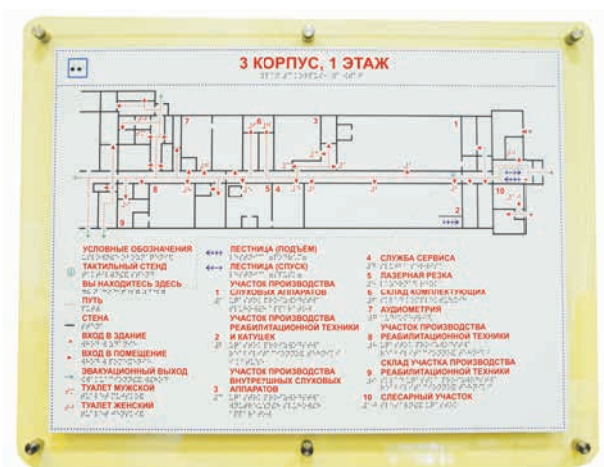 3 КОРПУС, 1 ЭТАЖ
7
6
3
1
8
5
4
2
10
9
УСЛОВНЫЕ ОБОЗНАЧЕНИЯ
ТАКТИЛЬНЫЙ СТЕНД
ВЫ НАХОДИТЕСЬ ЗДЕСЬ
ПУТЬ
СТЕНА
ВХОД В ЗДАНИЕ
ВХОД В ПОМЕЩЕНИЕ
ЭВАКУАЦИОННЫЙ ВЫХОД
ТУАЛЕТ МУЖСКОЙ
ТУАЛЕТ ЖЕНСКИЙ
ЛЕСТНИЦА (ПОДЪЁМ)
ЛЕСТНИЦА (СПУСК)
УЧАСТОК ПРОИЗВОДСТВА
1 СЛУХОВЫХ АППАРАТОВ
УЧАСТОК ПРОИЗВОДСТВА
РЕАБИЛИТАЦИОННОЙ ТЕХНИКИ
2 И КАТУШЕК
УЧАСТОК ПРОИЗВОДСТВА
ВНУТРЕ?ШНЫХ СЛУХОВЫХ
3 АППАРАТОВ
4 СЛУЖБА СЕРВИСА
5 ЛАЗЕРНАЯ РЕЗКА
6 СКЛАД КОМПЛЕКТУЮЩИХ
7 АУДИОМЕТРИЯ
УЧАСТОК ПРОИЗВОДСТВА
8 РЕАБИЛИТАЦИОННОЙ ТЕХНИКИ
СКЛАД УЧАСТКА ПРОИЗВОДСТВА
9 РЕАБИЛИТАЦИОННОЙ ТЕХНИКИ
10 СЛЕСАРНЫЙ УЧАСТОК